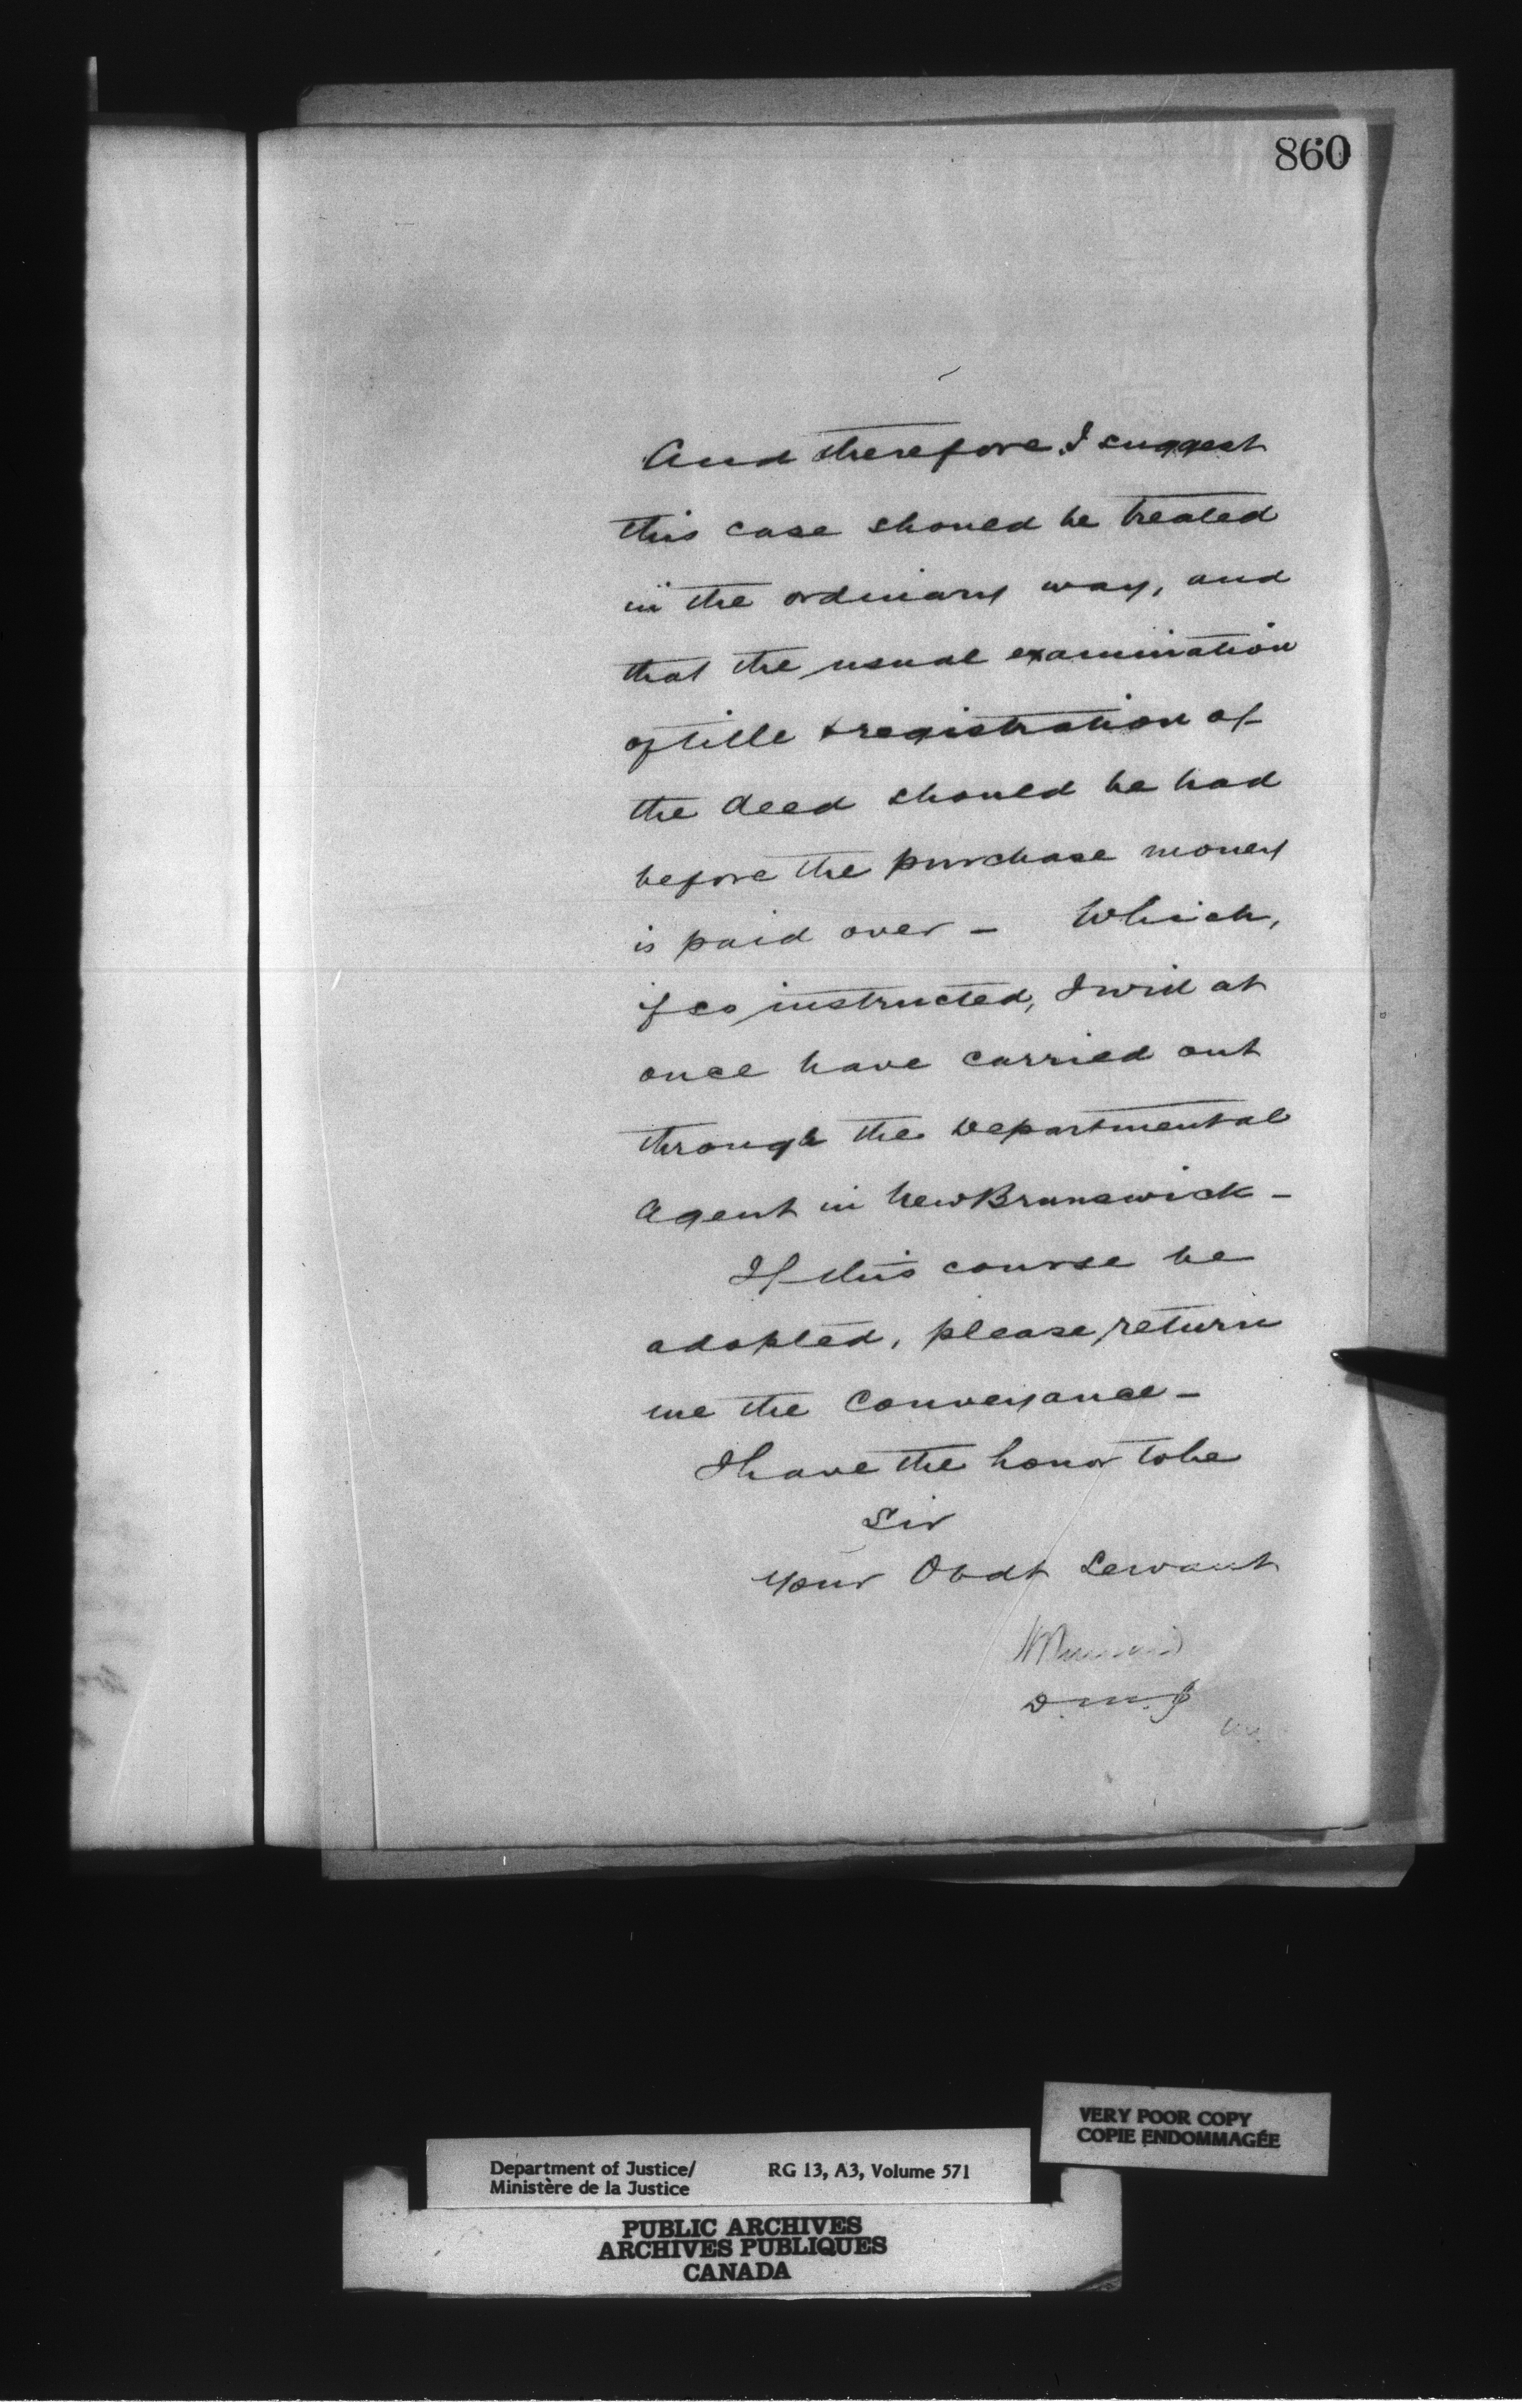 860
And therefore I suggest
this case should be treated
in the ordinary way, and
that the usual examination
of title & registration of
the deed should be had
before the purchase money
is paid over – Which,
if so instructed, I will at
once have carried out
through the Departmental
Agent in New Brunswick –
If this course be
adopted, please return
me the Conveyance –
I have the honor to be
Sir
Your Obdt Servant
D.M.J
VERY POOR COPY
COPIE ENDOMMAGÉE
Department of Justice/ RG 13, A3, Volume 571
Ministère de la Justice
PUBLIC ARCHIVES
ARCHIVES PUBLIQUES
CANADA